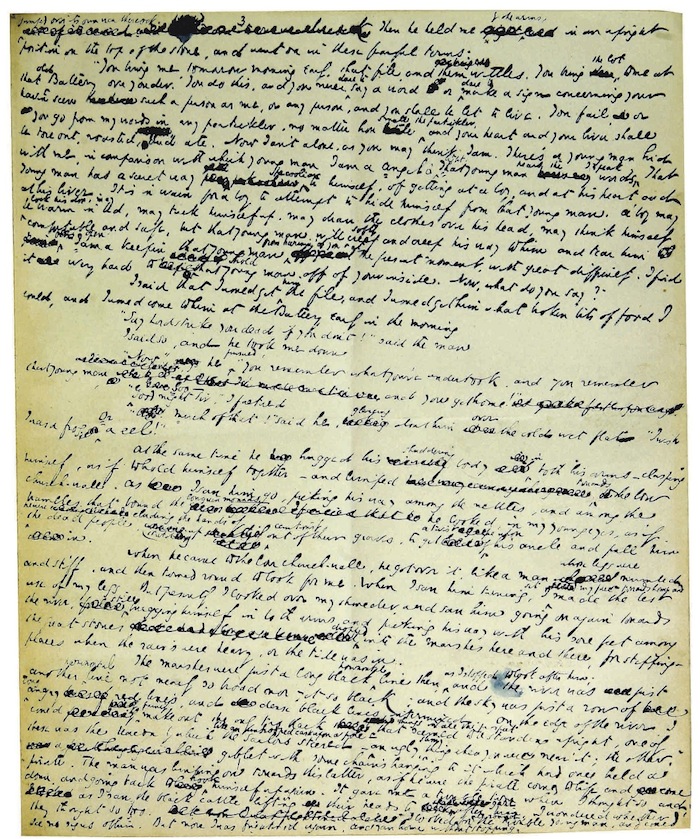 3
Then he held me by the arms in an upright
position on the top of the stone, and went on in these fearful terms:
"You bring me tomorrow morning early that file, and them wittles. You bring the lot, to me at
that old Battery over yonder. You do this, and you never say a word or dare to make a sign concerning your
having seen such a person as me, or any person, and you shall be let to live. You fail or
you go from my words in any partickler, no matter how small, and your heart and your liver shall
be tore out, roasted, and ate. Now I ain't alone, as you may think I am. There's a young man hid
with me, in comparison with which young man I am a angel. That young man hears the words I speak. That
young man has a secret way peculiar to himself, of getting at a boy, and at his heart and
at his liver. It is in vain for a boy to attempt to hide himself from that young man. A boy may
lock his door, may
be warm in bed, may tuck himself up, may draw the clothes over his head, may think himself
comfortable and safe, but that young man will softly creep and creep his way to him and tear him
open. I am a keeping that young man from harming of you at the present moment, with great difficulty. I find
it very hard to hold that young man off of your inside. Now, what do you say?"
I said that I would get him the file, and I would get him what broken bits of food I
could, and I would come to him at the Battery early in the morning
"Say Lord strike you dead if you don't!" said the man
I said so, and he took me down
"Now" he pursued "You remember what you've undertook, and you remember
that young man and you get home!"
"Goo-good night sir," I faltered
"Much of that!" said he, glancing about him over the cold wet flat. "I wish
I was a frog. Or a eel!"
At the same time he hugged his shuddering body in both his arms - clasping
himself, as if to hold himself together - and limped towards the low
church wall. As I saw him go, picking his way among the nettles, and among the
brambles that bound the green mounds he looked in my young eyes, as if
he were eluding the hands of
the dead people, stretching up cautiously out of their graves, to get a twist upon his ancle and pull him
in.
When he came to the low church wall, he got over it like a man whose legs were numbed
and stiff, and then turned round to look for me. When I saw him turning, I set my face towards home and made the best
use of my legs. But presently I looked over my shoulder and saw him going on again towards
the river, still hugging himself in both arms, and picking his way with his sore feet among
the great stones dropped into the marshes here and there, for stepping-
places when the rains were heavy, or the tide was in.
The marshes were just a long black horizontal line then, as I stopped to look after him; and the river was just
another horizontal line not nearly so broad nor yet so black; and the sky was just a row of long
angry red lines, and dense black lines intermixed. On the edge of the river I
could faintly make out the only two black things in all the prospect that seemed to stand up upright, one of
these was the beacon by which the sailors steered - an ugly thing when you were near it; the other
a gibbet with some chains hanging to it which had once held a
pirate. The man was limping on towards this latter, as if he were the pirate come to life and come
down, and going back to hook himself up again. It gave me a terrible turn when I thought so and
as I saw the black cattle lifting their heads to gaze after him, I wondered whether
they thought so too. I looked all round for the horrible young man and could
see no signs of him. But now I was frightened again, and ran home without stopping.